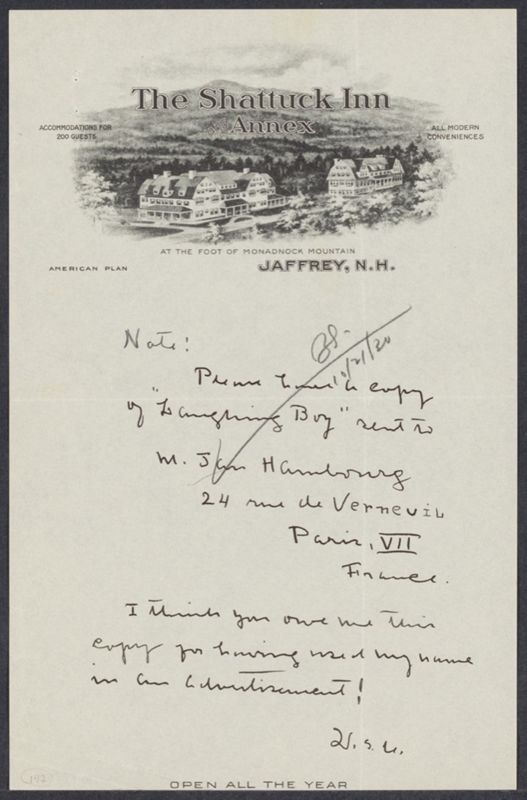 The Shattuck Inn
and Annex
ACCOMMODATIONS FOR
200 GUESTS
ALL MODERN
CONVENIENCES
AT THE FOOT OF MONADNOCK MOUNTAIN
AMERICAN PLAN
JAFFREY, N.H.
Note:
Please have a copy
of "Laughing Boy" sent to
M. Jan Hambourg
24 rue de Verneuil
Paris, VII
France.
I think you owe me this
copy for having used my name
in an advertisement!
W.S.C.
OPEN ALL THE YEAR